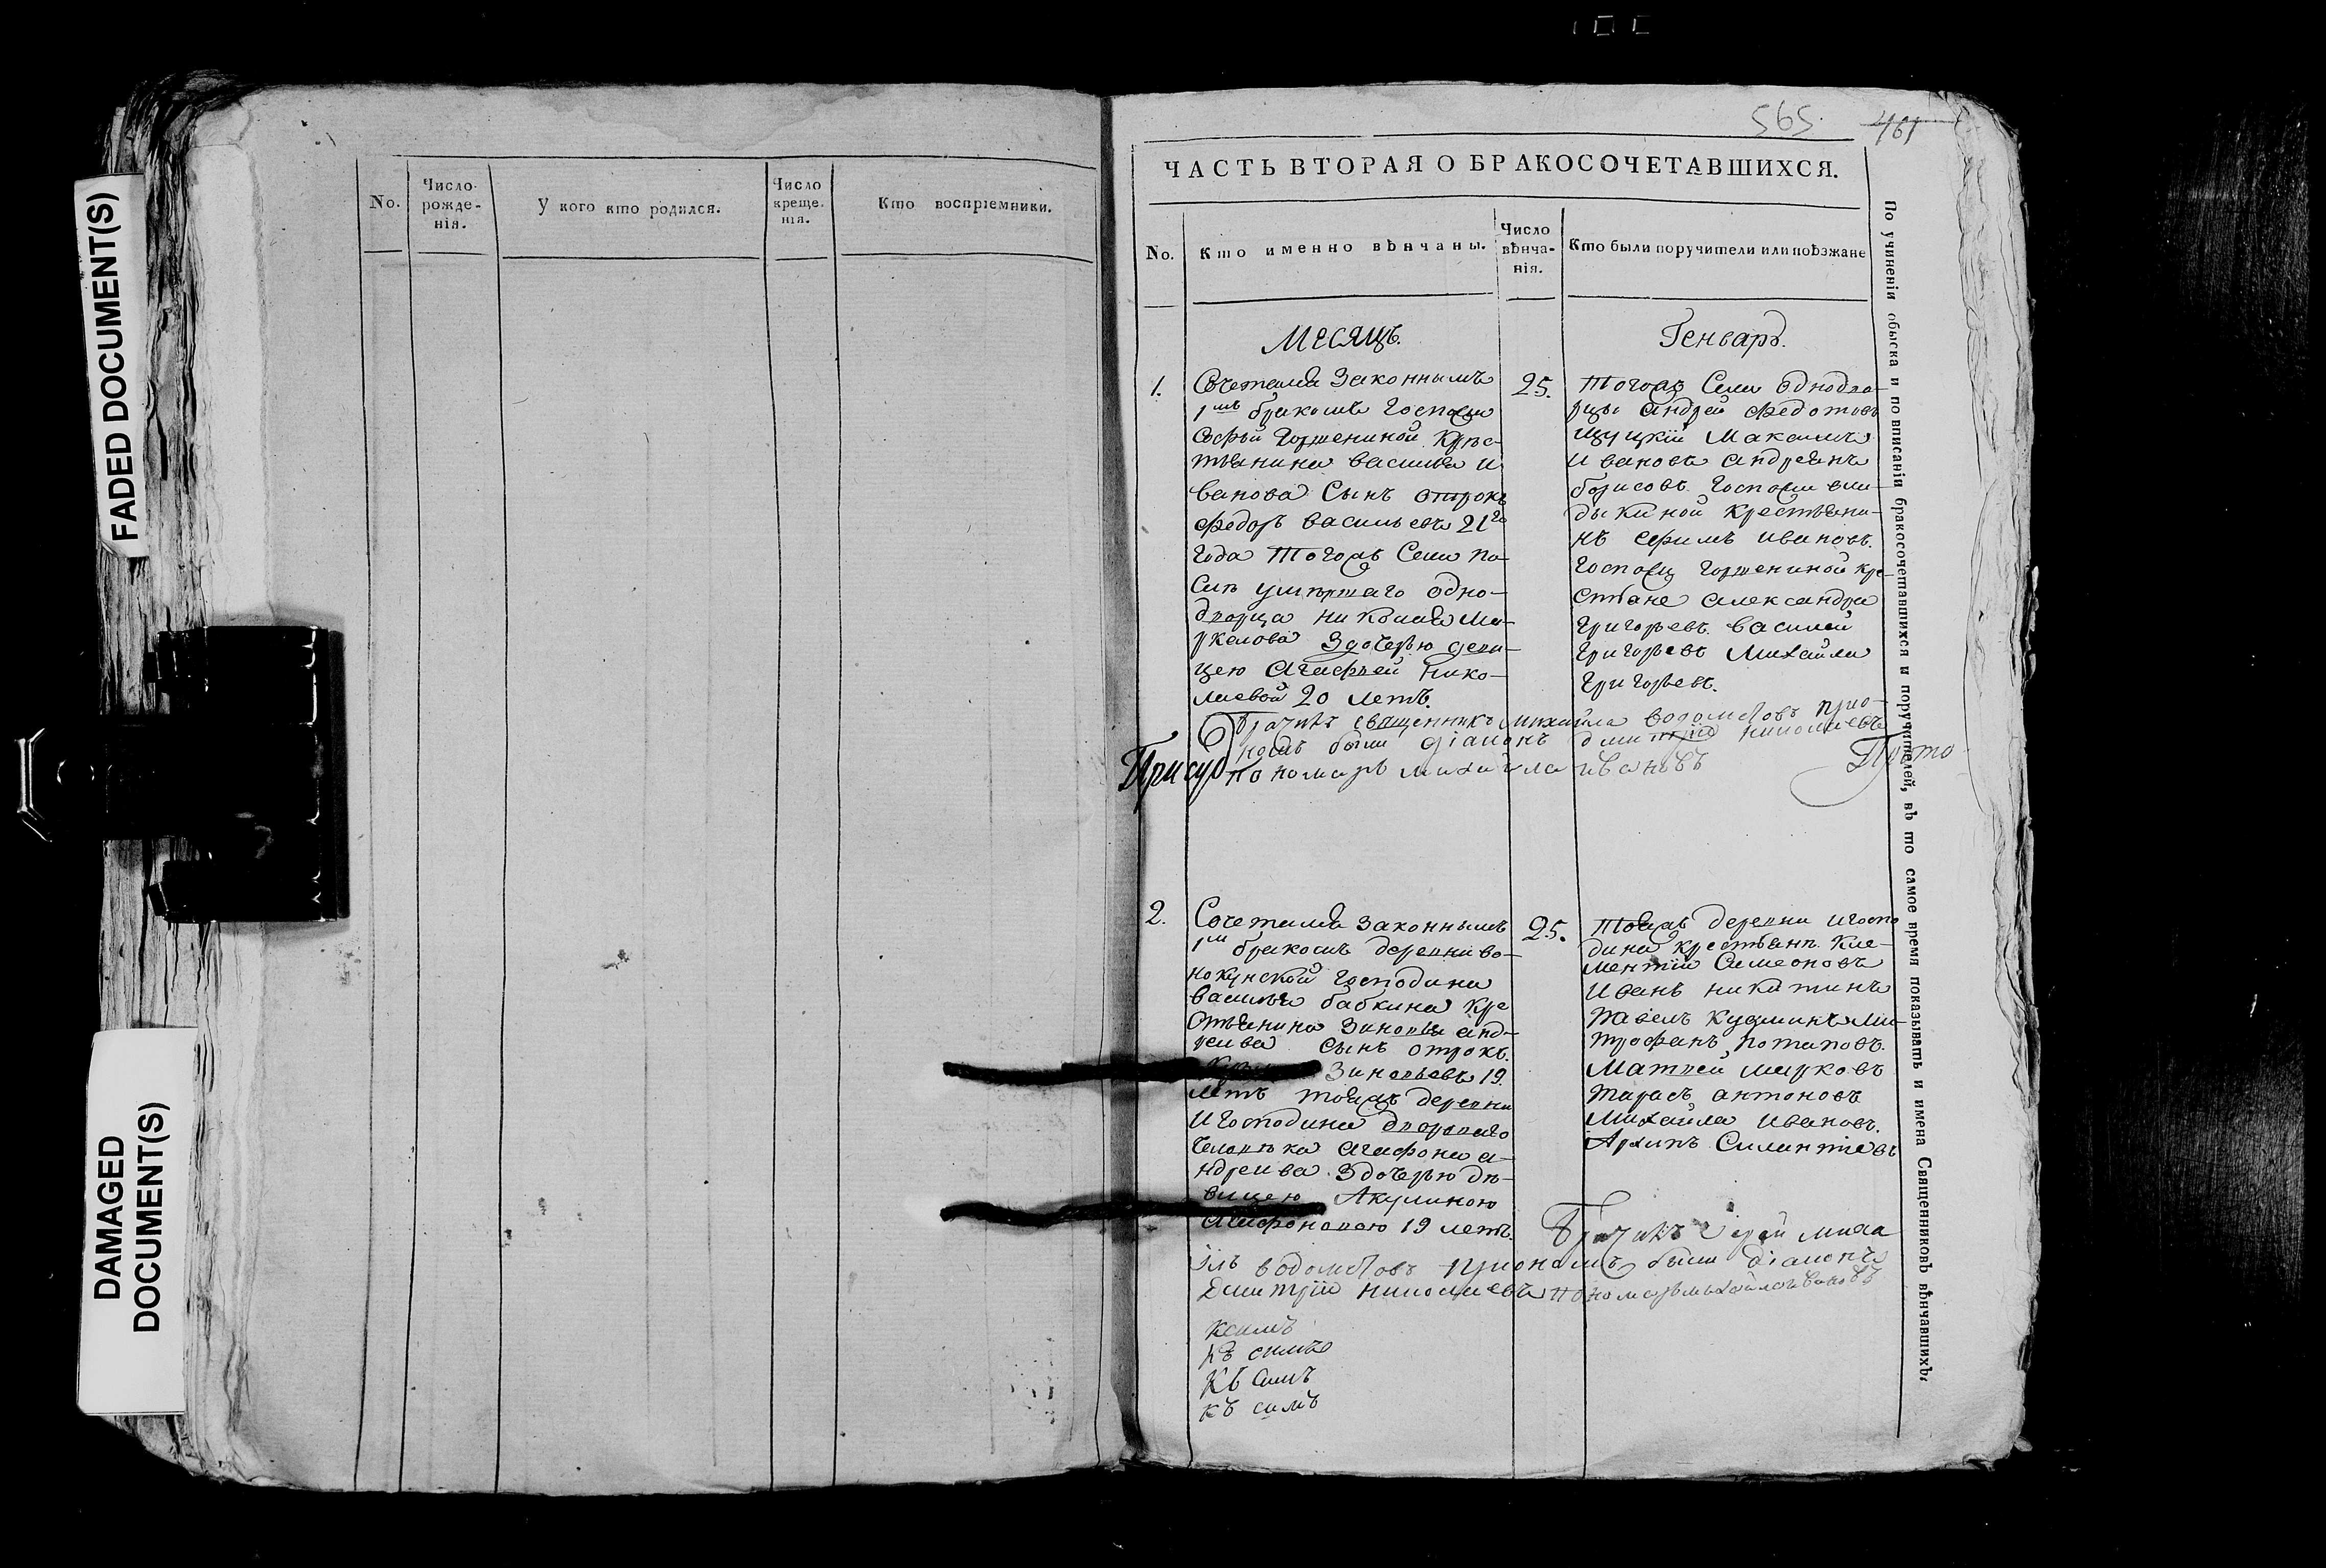 FADED DOCUMENT(S)
DAMAGED
DOCUMENT(S)
No.
Число
рожде-
нія.
У кого кто родился.
Число
креще-
нія.
Кто воспріемники.
565.
461
ЧАСТЬ ВТОРАЯ О БРАКОСОЧЕТАВШИХСЯ.
No.
Кто именно вѣнчаны.
Число
вѣнча-
нія.
Кто были поручители или поѣзжане
Месяцъ.
Генварь.
1.
Сочетался Законнымъ
1мъ бракомъ Госпожи
Софьи Гортениной Кре-
стьянина василья и
ванова Сынъ отрокъ
Федоръ васильевъ 21го
года тогожъ Села по-
сле умершаго одно-
дворца николая Ма-
ркелова Здочерью деви-
цею Агафьей Нико-
лаевой 20 летъ.
25.
тогожъ Села однодво-
рцы андрей Федотовъ
Щуцкій Максимъ
Ивановъ андреянъ
борисовъ. Госпожи
дыкиной крестьяни-
нъ ефимъ ивановъ.
Госпожи Гортениной кре-
стьяне александръ
Григорьевъ. василей
Григорьевъ Михайла
Григорьевъ.
Брачилъ священникъ михайла водометовъ прио-
номъ были діаконъ дмитрій николаевъ
пономарь михайла ивановъ
Присуд
Прото
2.
Сочетался законнымъ
1мъ бракомъ деревни во-
нокунской господина
василья бабкина кре
стьянина Зиновья анд-
реева сынъ отрокъ.
Зиновьевъ 19.
летъ тойжъ деревни
И господина двороваго
человека агафона а-
ндреева Здочерью де-
вицею Акулиною
Агафоновою 19 летъ.
25.
тойжъ деревни игоспо
дина крестьяне Кле-
ментій Симеоновъ
Иванъ никитинъ
Павелъ кузминъ Ми-
трофанъ потаповъ.
Матвей Марковъ
тарасъ антоновъ
Михайла Ивановъ.
Архипъ Силантьевъ
Брачилъ Іерей миха
илъ водометовъ приономъ были діаконъ
Дмитрій николаевъ пономарь михайла ивановъ
ксимъ
къ симъ
къ симъ
къ симъ
По учиненіи обыска и по вписаніи бракосочетавшихся и поручителей, въ то самое время показывать и имена Священниковъ вѣнчавшихъ